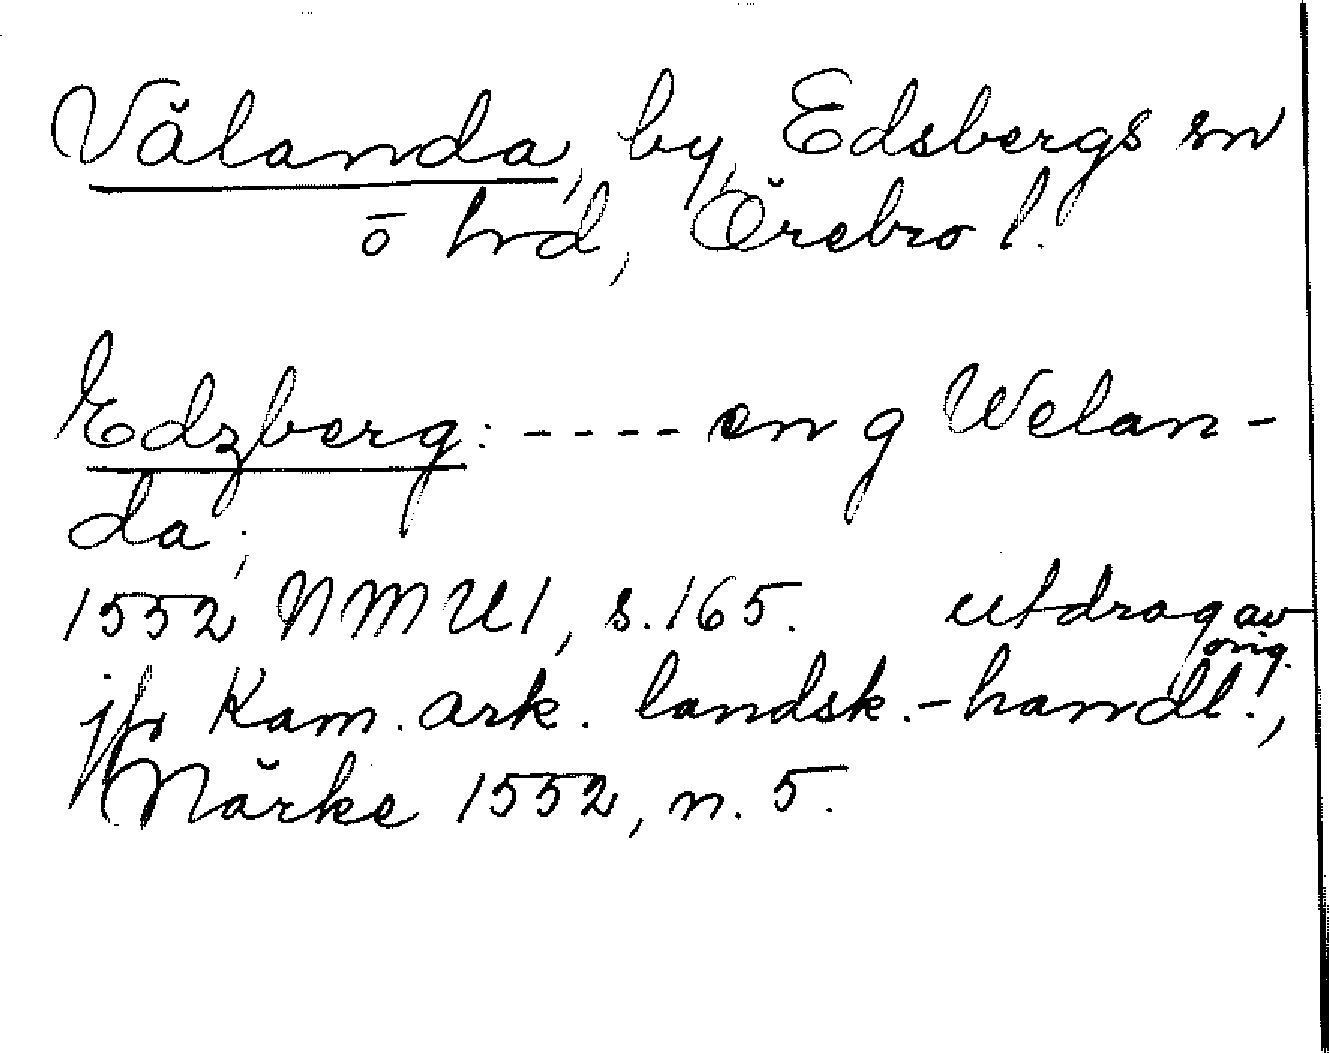 Välanda, by, Edsbergs sn
o hrd, Örebro l.
Edzberg: ---- en g Welan-
da;
1552 NMU1, s.165. utdrag av
orig.
jfr Kam. ark. landsk.-handl.,
Närke 1552, n. 5.